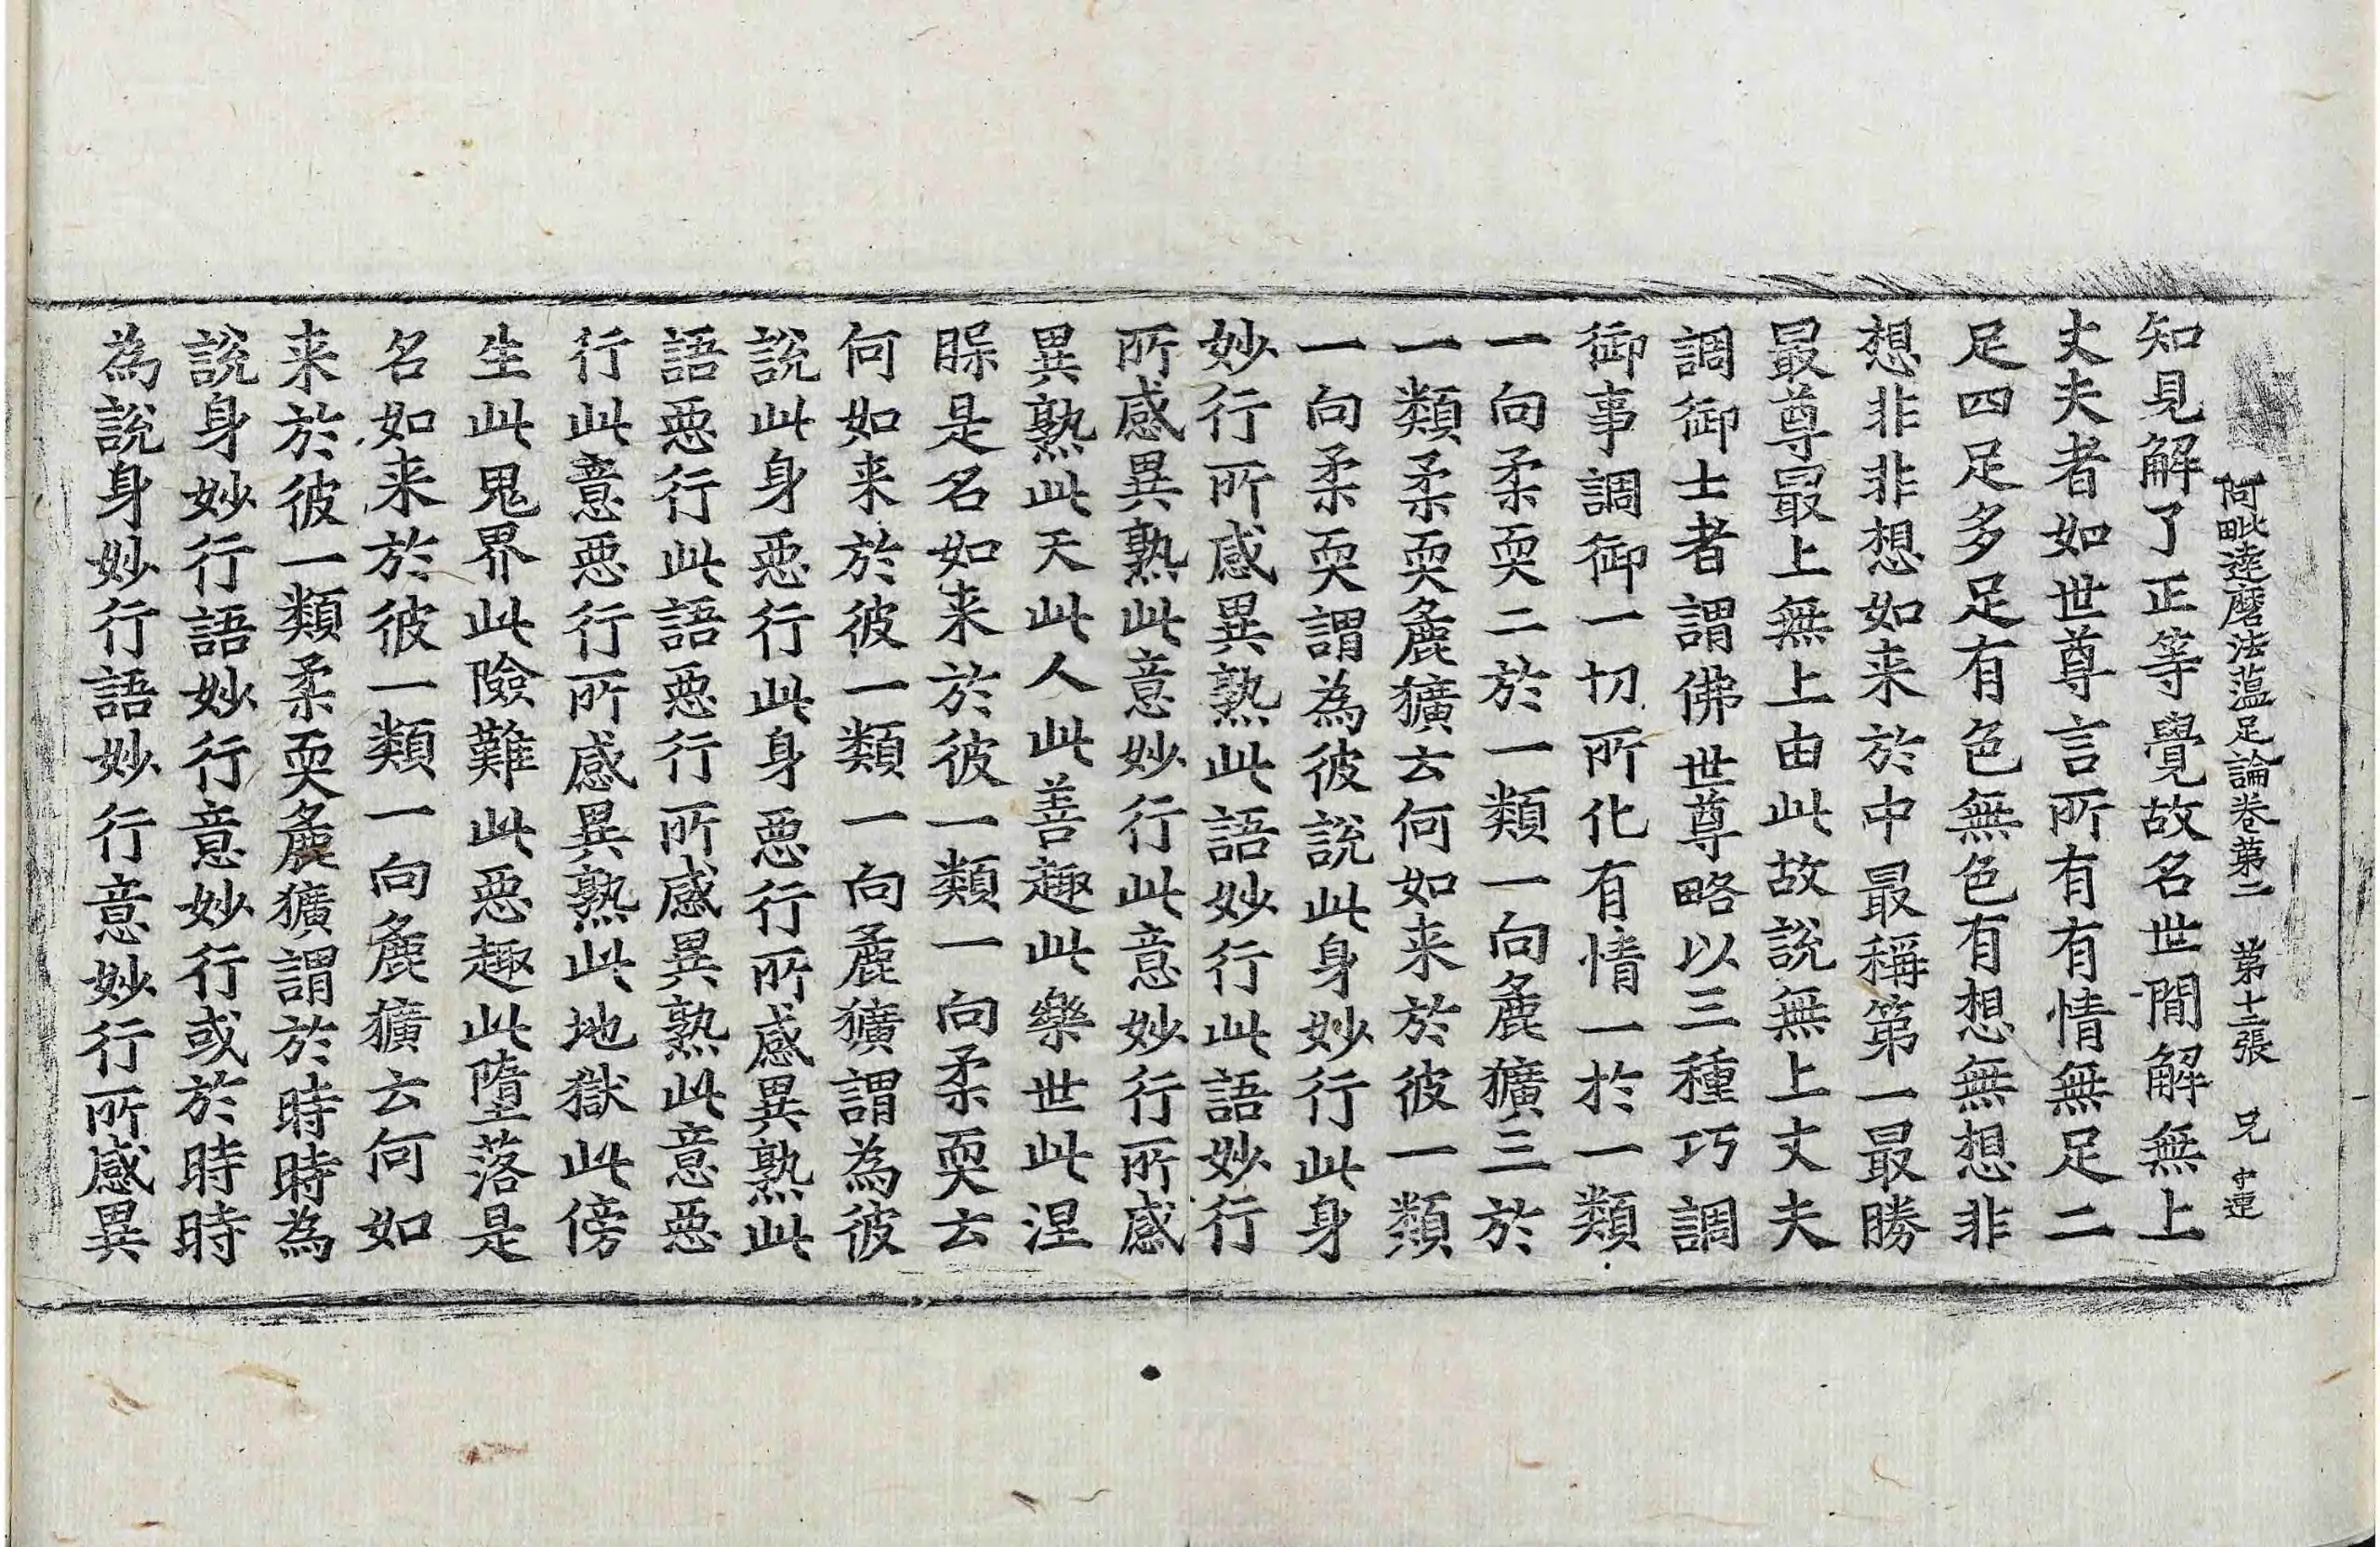 阿毗達磨法蘊足論卷第二 第十二張 兄 中連
知見解了正等覺故名世間解無上
丈夫者如世尊言所有有情無足二
足四足多足有色無色有想無想非
想非非想如来於中最稱第一最勝
最尊最上無上由此故說無上丈夫
調御士者謂佛世尊略以三種巧調
御事調御一切所化有情一於一類
一向柔耎二於一類一向麁獷三於
一類柔耎麁獷云何如来於彼一類
一向柔耎謂為彼說此身妙行此身
妙行所感異熟此語妙行此語妙行
所感異熟此意妙行此意妙行所感
異熟此天此人此善趣此樂世此涅
䁥是名如来於彼一類一向柔耎云
何如来於彼一類一向麁獷謂為彼
說此身惡行此身惡行所感異熟此
語惡行此語惡行所感異熟此意惡
行此意惡行所感異熟此地獄此傍
生此鬼界此險難此惡趣此墮落是
名如来於彼一類一向麁獷云何如
来於彼一類柔耎麁獷謂於時時為
說身妙行語妙行意妙行或於時時
為說身妙行語妙行意妙行所感異